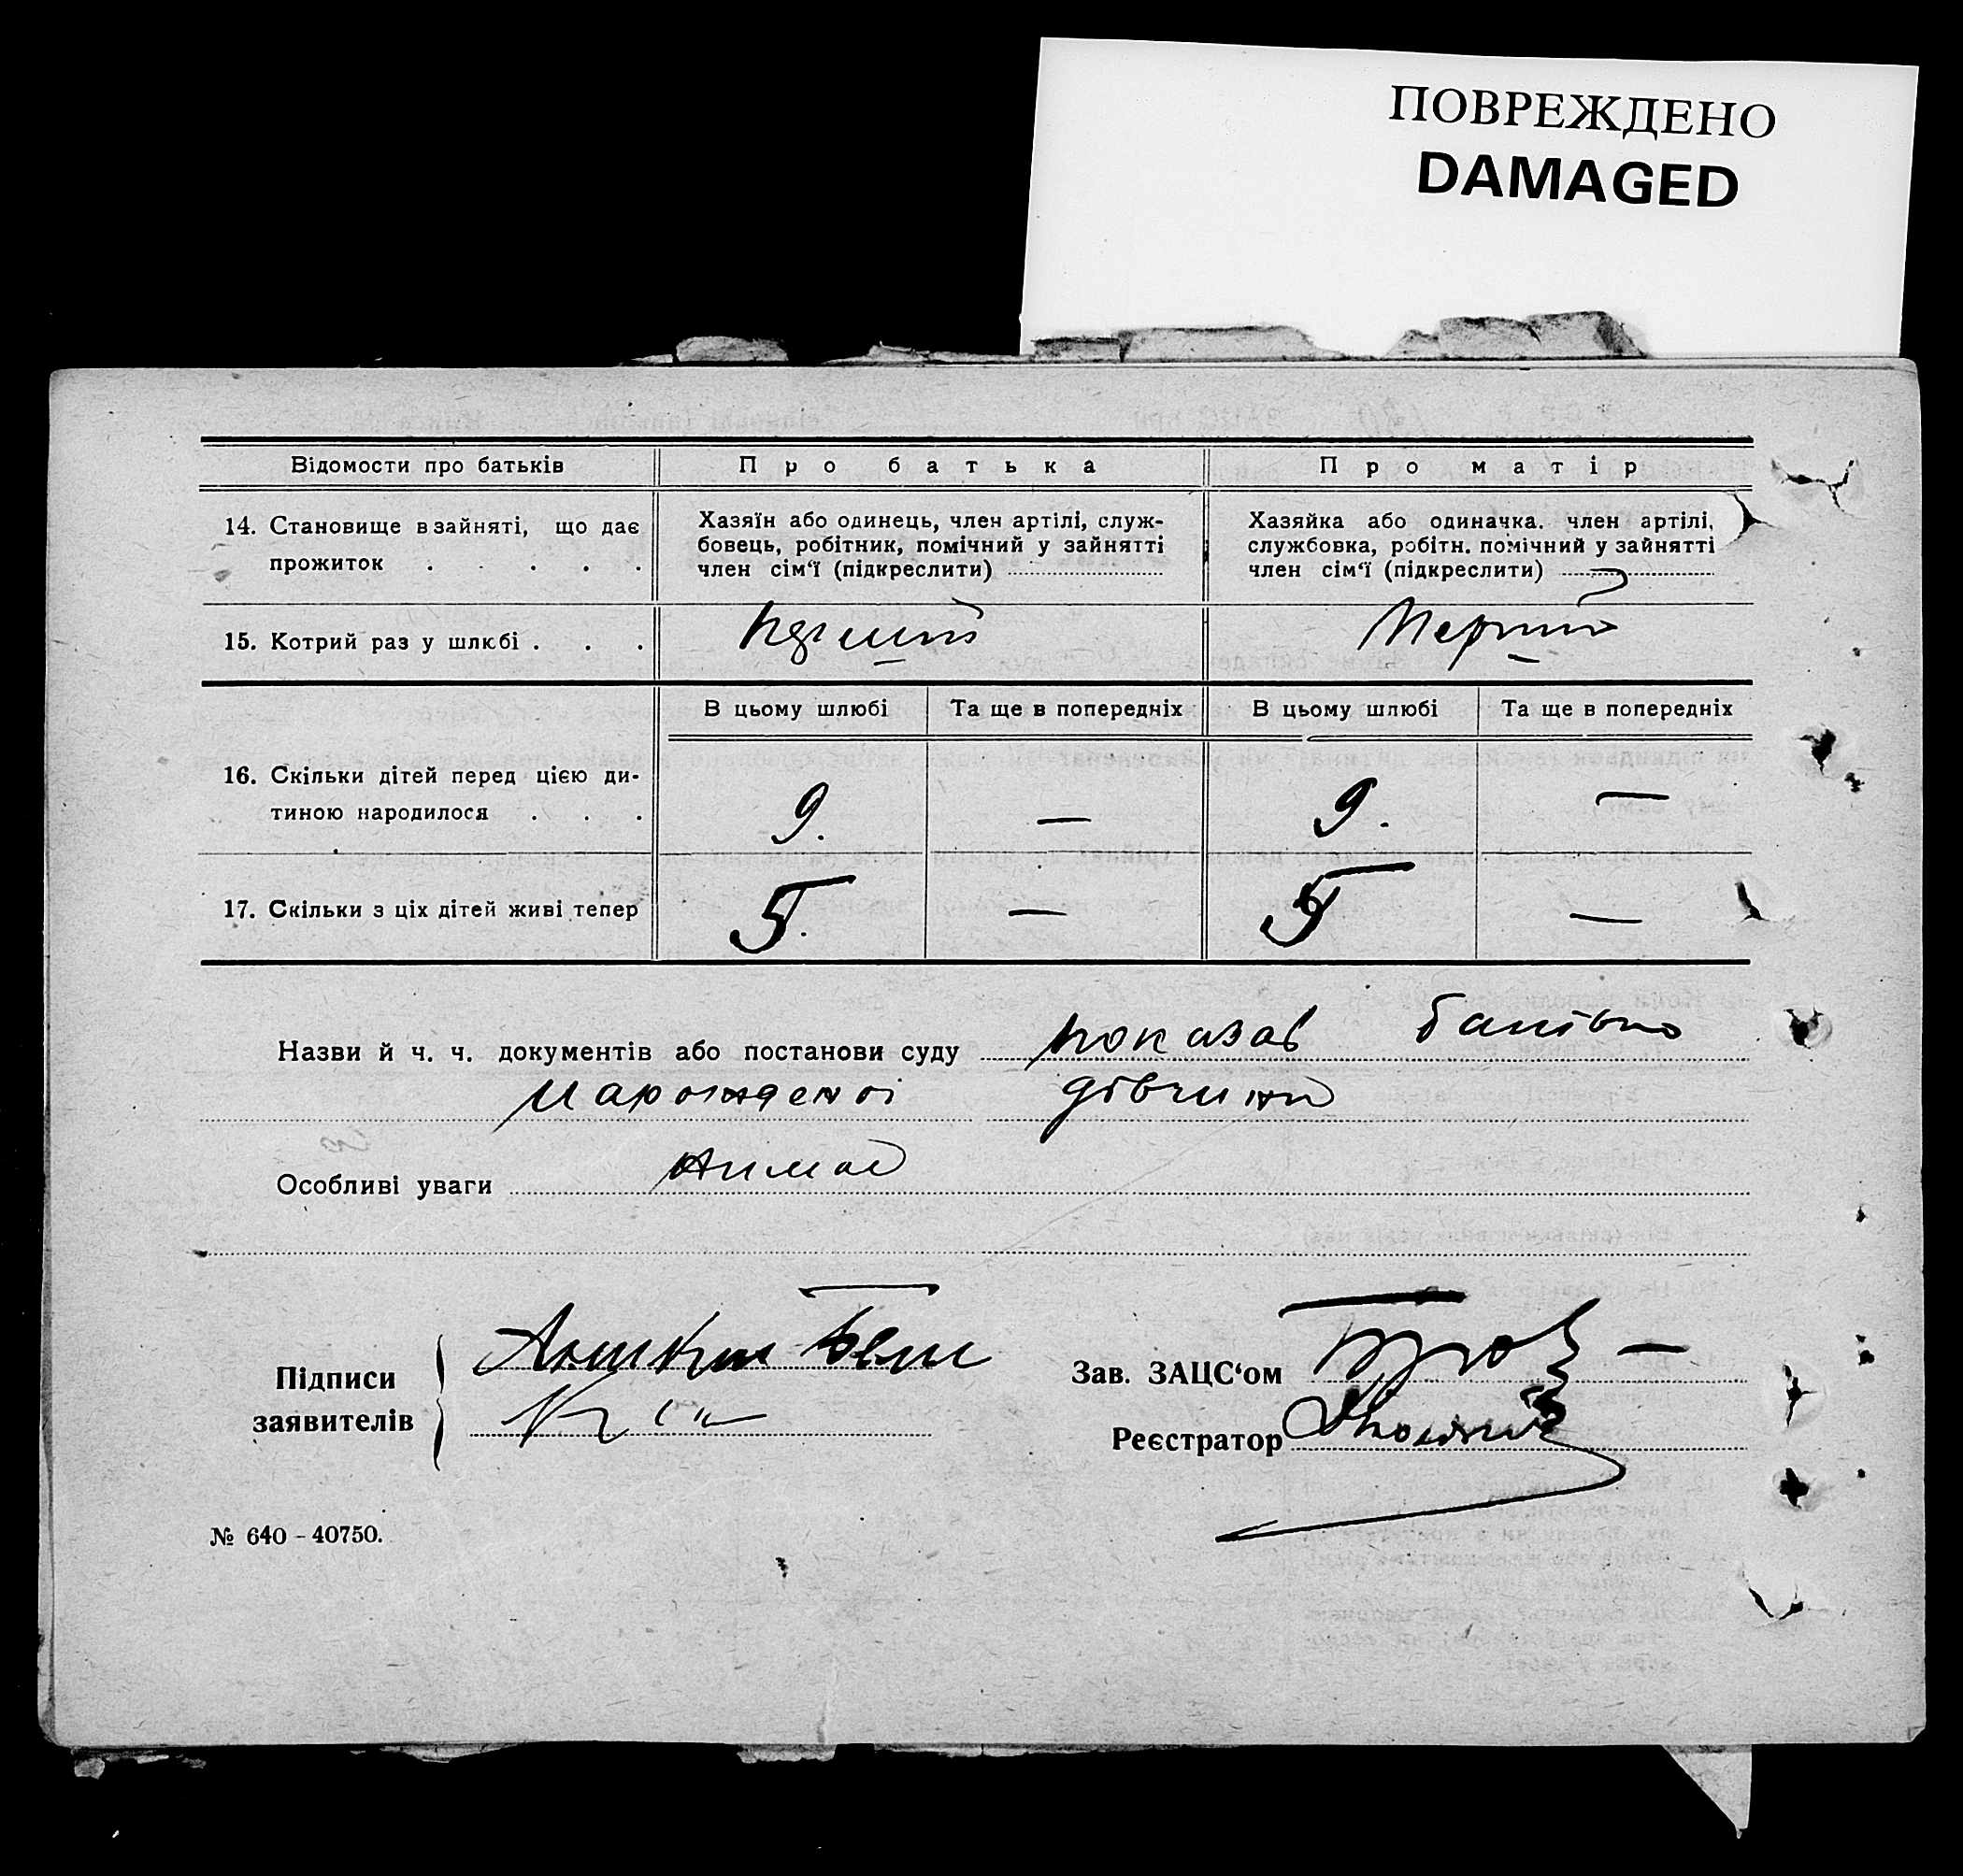 ПОВРЕЖДЕНО
DAMAGED
Відомости про батьків Про батька Про матір
14. Становище в зайняті, що дає
прожиток . . . . .
Хазяїн або одинець, член артілі, служ-
бовець, робітник, помічний у зайнятті
член сім‘ї (підкреслити)
Хазяйка або одиначка. член артілі,
службовка, робітн. помічний у зайнятті
член сім‘ї (підкреслити)
15. Котрий раз у шлюбі . . . Перший Перший
В цьому шлюбі Та ще в попередніх В цьому шлюбі Та ще в попередніх
16. Скільки дітей перед цією ди-
тиною народилося . . . 9. — 9. —
17. Скільки з ціх дітей живі тепер 5. — 5 —
Назви й ч. ч. документів або постанови суду показав батько
нарожденоі дівчини
Особливі уваги
Підписи
заявителів
Зав. ЗАЦС‘ом
Реєстратор
№ 640 – 40750.